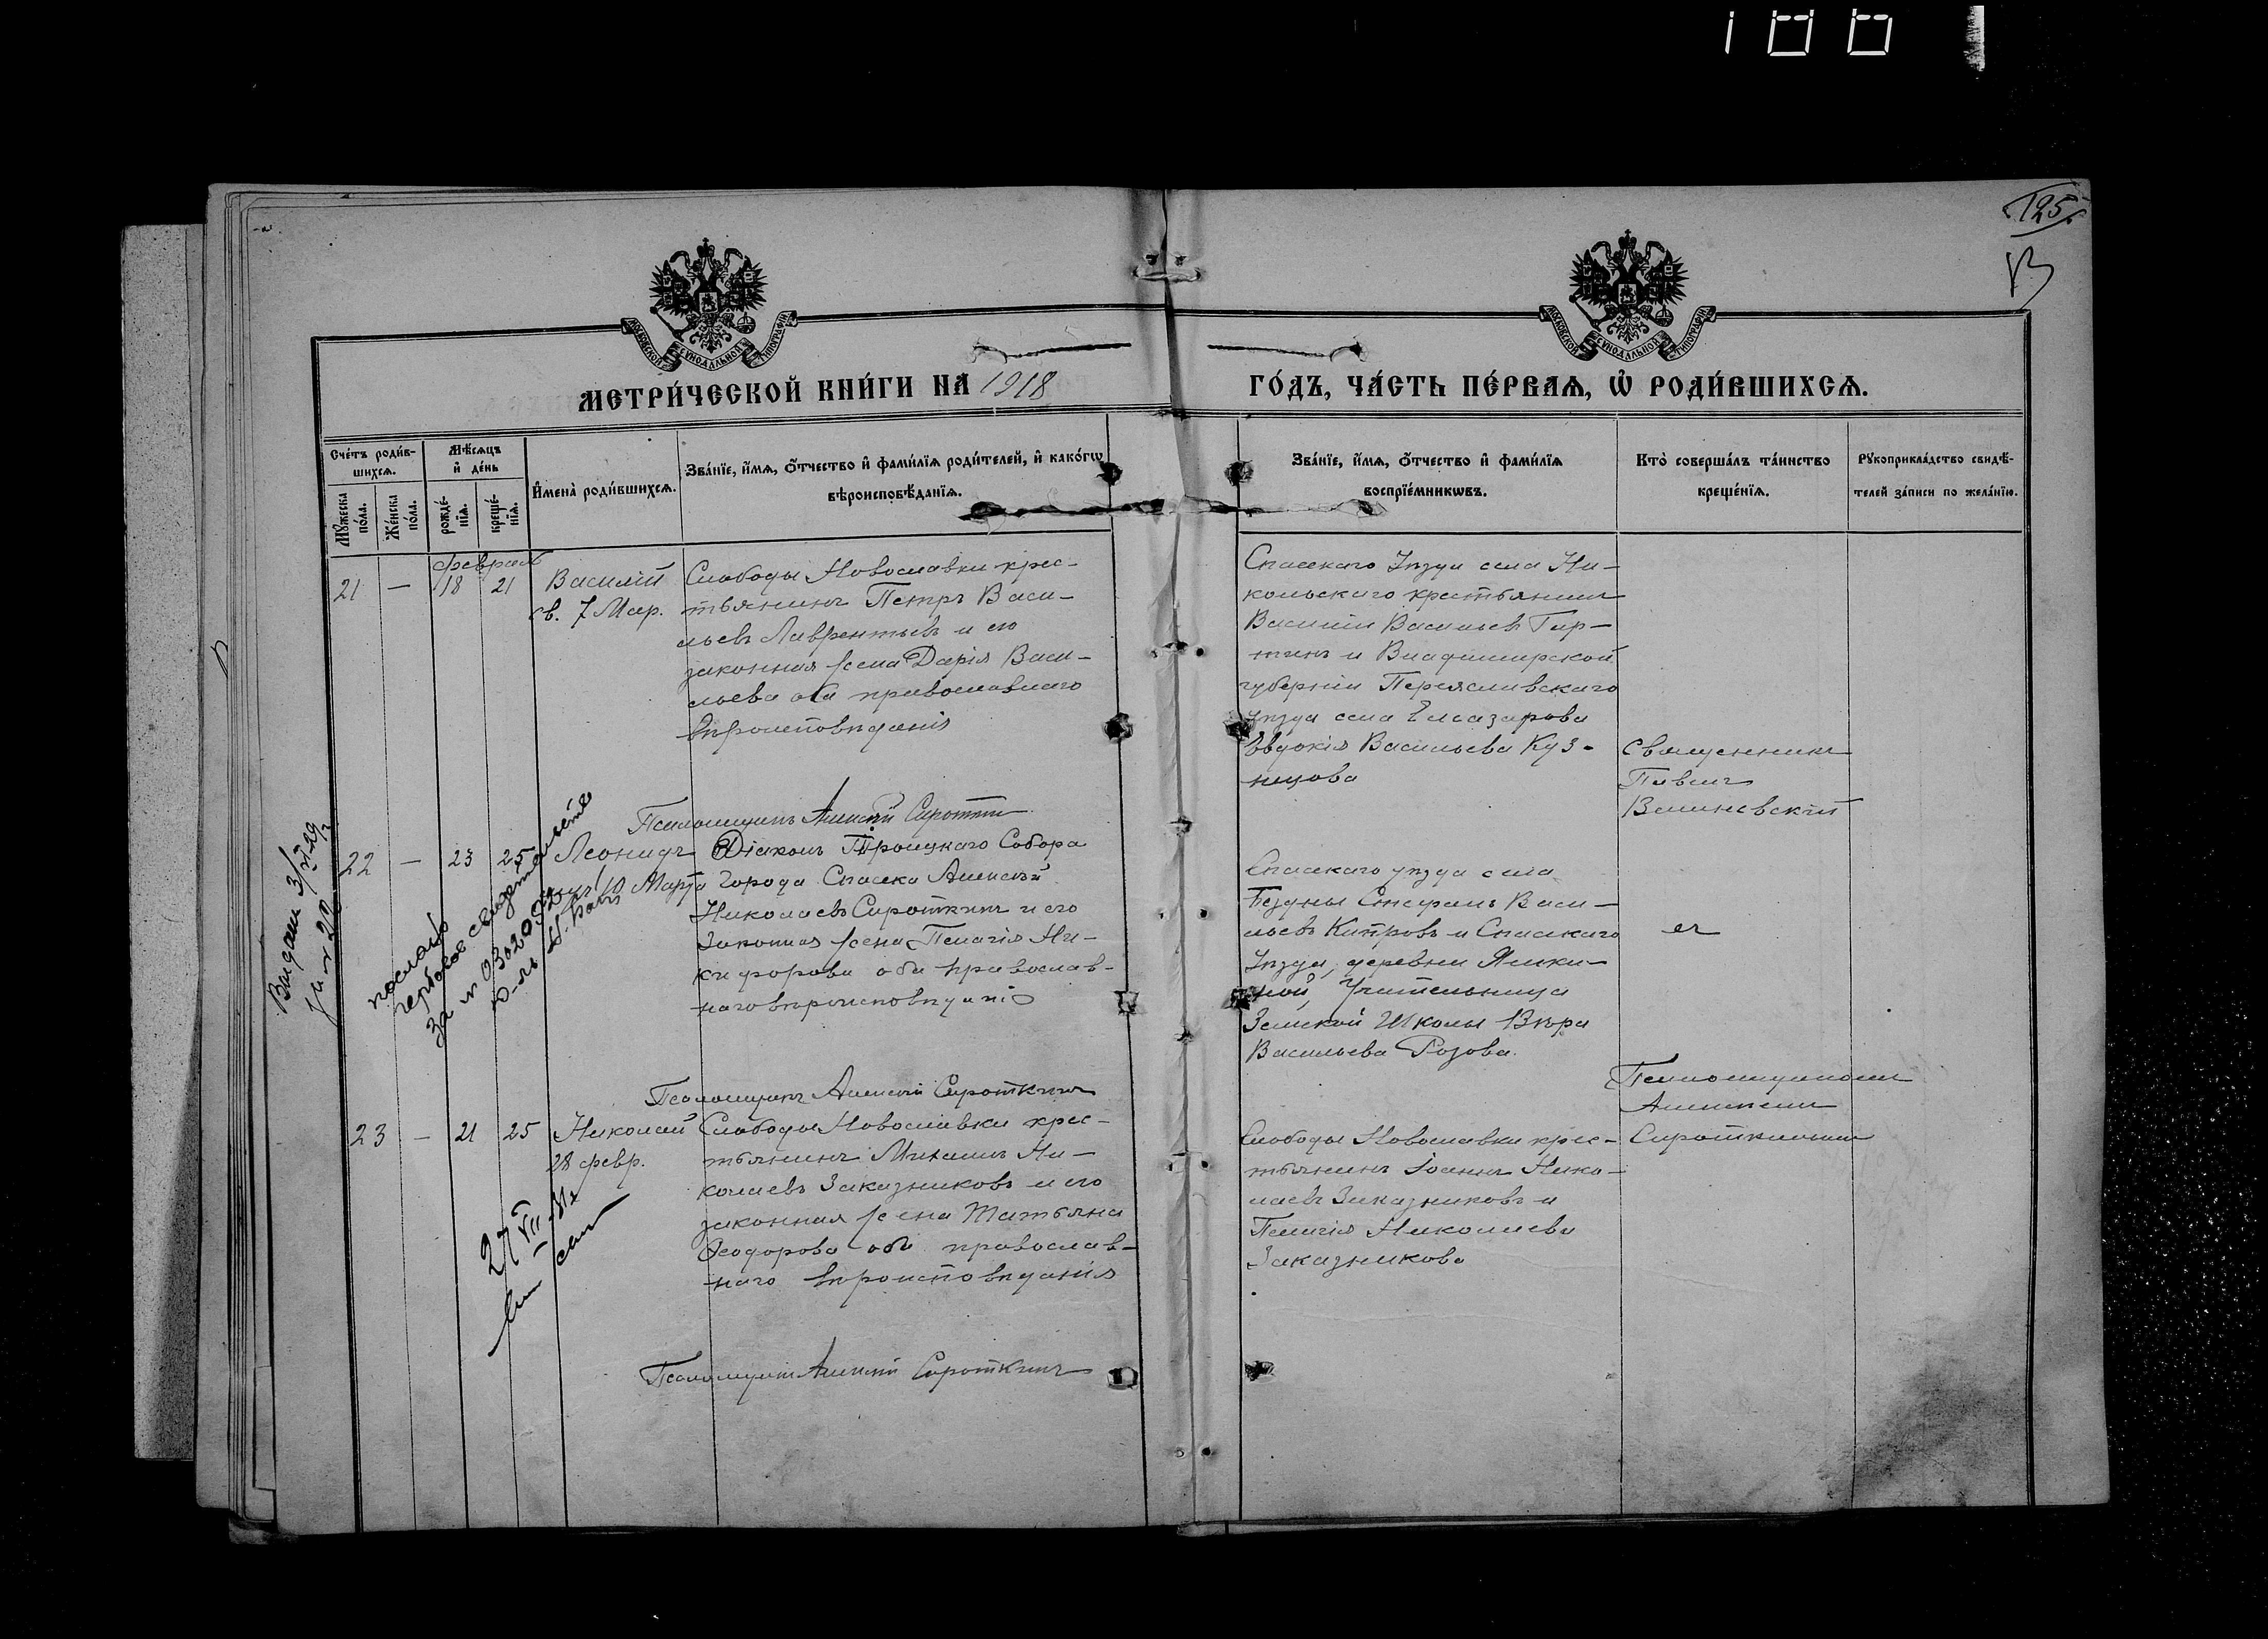 125
МОСКОВСКОЙ СѴНОДАЛЬНОЙ ТИПОГРАФІИ
МОСКОВСКОЙ СѴНОДАЛЬНОЙ ТИПОГРАФІИ
МЕТРИ́ЧЕСКОЙ КНИ́ГИ НА 1918
ГО́ДЪ, ЧА́СТЬ ПЕ́РВАѦ, Ѡ҆ РОДИ́ВШИХСѦ.
Сче́тъ роди́в-
шихсѧ.
Мꙋ́жеска по́ла.
Же́нска по́ла.
Мѣ́сѧцъ и҆ де́нь
рожде́-
нїѧ.
креще́-
нїѧ.
И҆мена̀ роди́вшихсѧ.
Зва́нїе, и҆́мѧ, ѻ҆́тчество и҆ фами́лїѧ роди́телей, и҆ како́гѡ
вѣроисповѣ́данїѧ.
Зва́нїе, и҆́мѧ, ѻ҆́тчество и҆ фами́лїѧ
воспрїе́мникѡвъ.
Кто̀ соверша́лъ та́инство
креще́нїѧ.
Рꙋкоприкла́дство свидѣ́-
телей за́писи по жела́нїю.
февраль
21 — 18 21 Василій
св. 7 Мар.
Слободы Новославки крес-
тьянинъ Петръ Васи-
льевъ Лаврентьевъ и его
законная жена Дарія Васи-
льева оба православнаго
вѣроисповѣданія
Спасскаго Уѣзда села Ни-
кольскаго крестьянин
Василій Васильевъ
и Владимирской
губерніи Переяславскаго
уѣзда села Елеазарова
Евдокія Васильева Куз-
нецова
Священникъ
Павелъ
Псаломщикъ Алексій Сироткин
22 — 23 25 Леонидъ
10 Марта
Діаконъ Троицкаго Собора
Города Спасска Алексѣй
Николаевъ Сироткинъ и его
Законная жена Пелагія Ни-
кифорова оба Православ-
наго вѣроисповѣданія
Спасскаго уѣзда села
Бездны Стефанъ Васи-
льевъ Китровъ и Спасскаго
Уѣзда, деревни Ямки-
ной, Учительница
Земской Школы Вѣра
Васильева Розова.
Псаломщикъ Алексій Сироткинъ
Псаломщикомъ
Алексіемъ
Сироткинымъ
23 — 21 25 Николай
28 февр.
Слободы Новославки крес-
тьянинъ Михаилъ Ни-
колаевъ Заказниковъ и его
законная жена Татьяна
Ѳеодорова оба православ-
наго вѣроисповѣданія
Слободы Новославки крес-
тьянинъ Іоаннъ Нико-
лаевъ Заказниковъ и
Пелагія Николаева
Заказникова
Псаломщикъ Алексій Сироткинъ
послано
гербовое свидетельство